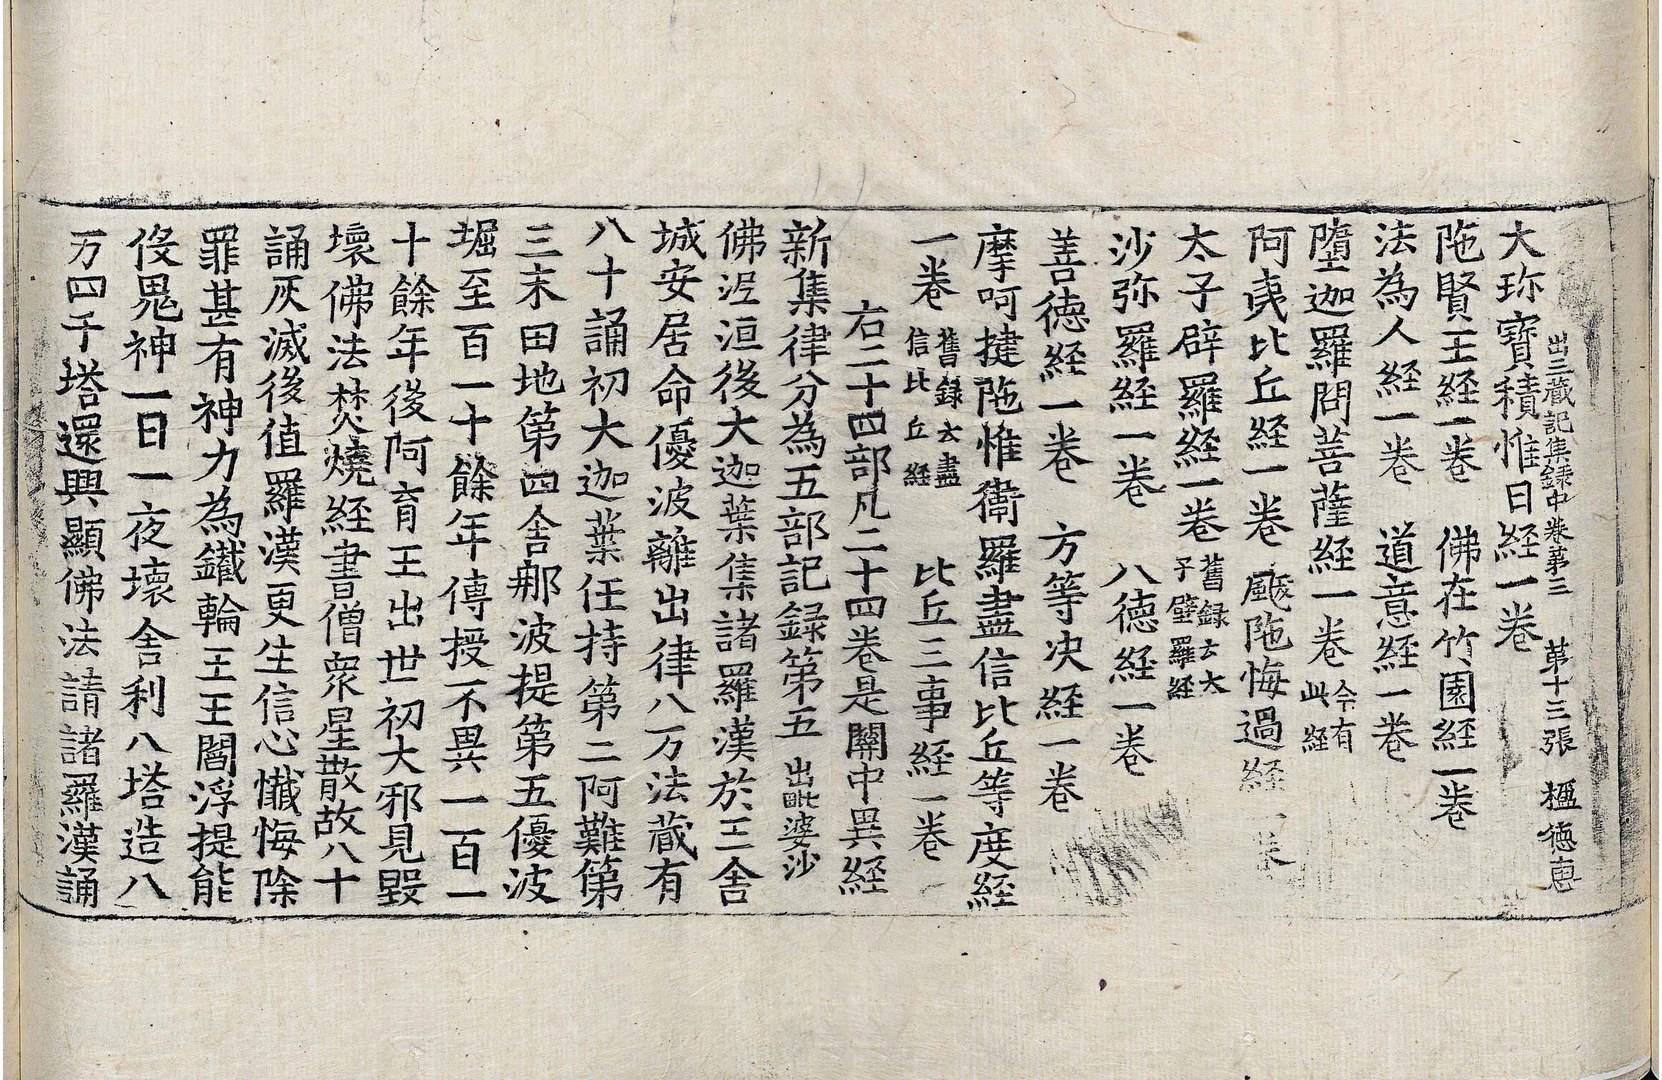 出三藏記集録中卷第三 第十三張 楹德惠
大珎寶積惟日経一卷
陁賢王経一卷 佛在竹園経一卷
法為人経一卷 道意経一卷
墮迦羅問菩薩経一卷 今有此経
阿夷比丘経一卷 颰陁悔過経一卷
太子辟羅経一卷 舊録云太子璧羅経
沙弥羅経一卷 八德経一卷
善德経一卷 方等决経一卷
摩呵揵陁惟衞羅盡信比丘等度経
一卷 舊録云盡信比丘経 比丘三事経一卷
右二十四部凡二十四卷是關中異経
新集律分為五部記録第五 出毗婆沙
佛泥洹後大迦葉集諸羅漢於王舎
城安居命優波離出律八万法藏有
八十誦初大迦葉任持第二阿難第
三末田地第四舎那波提第五優波
堀至百一十餘年傳授不異一百一
十餘年後阿育王出世初大邪見毀
壞佛法焚燒経書僧衆星散故八十
誦灰滅後值羅漢更生信心懺悔除
罪甚有神力為鐵輪王王閻浮提能
伇鬼神一日一夜壞舎利八塔造八
万四千塔還興顯佛法請諸羅漢誦